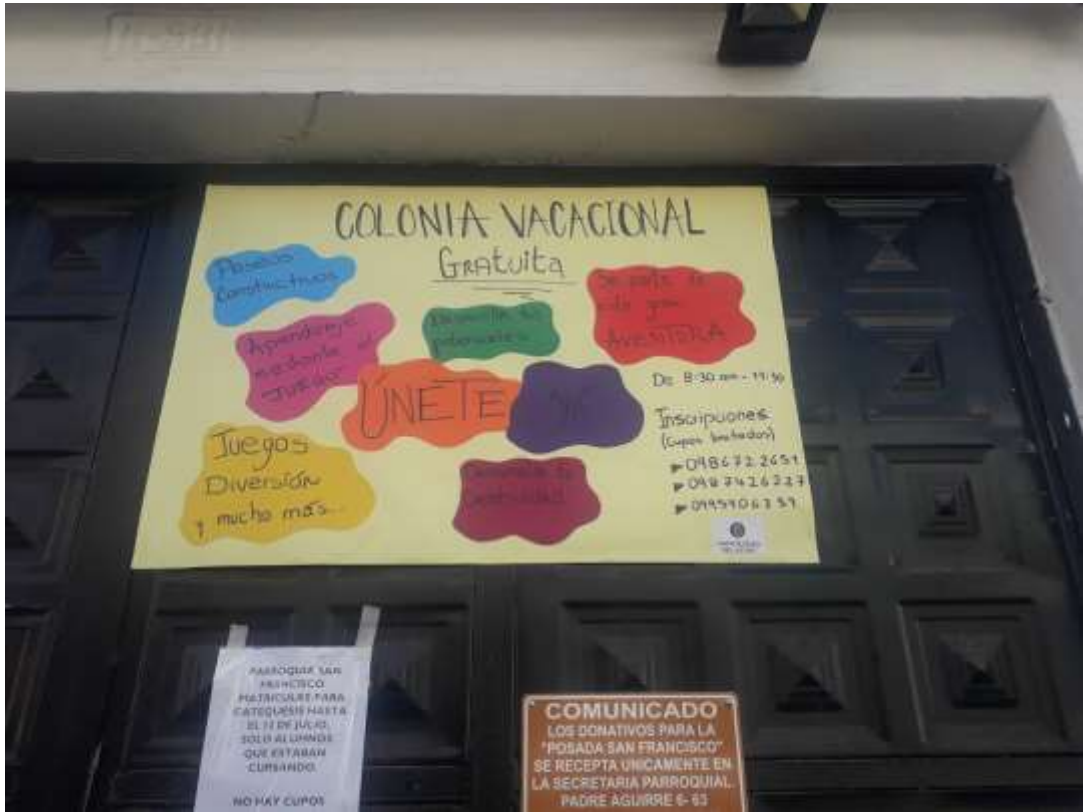 COLONIA VACACIONAL
GRATUITA
Paseos
Constructivos
Aprendizaje
mediante el
JUEGO
Desarrolla tu
potenciales
Se parte de
esta gran
AVENTURA
ÚNETE
YA
De 8:30 am -
Inscripciones
(Cupos limitados)
Juegos
Diversión
y mucho más...
Creatividad
PARROQUIA SAN
FRANCISCO
MATRICULAS PARA
CATEQUESIS HASTA
EL 12 DE JULIO,
SOLO ALUMNOS
QUE ESTABAN
CURSANDO.
NO HAY CUPOS
COMUNICADO
LOS DONATIVOS PARA LA
"POSADA SAN FRANCISCO"
SE RECEPTA UNICAMENTE EN
LA SECRETARIA PARROQUIAL.
PADRE AGUIRRE 6- 63